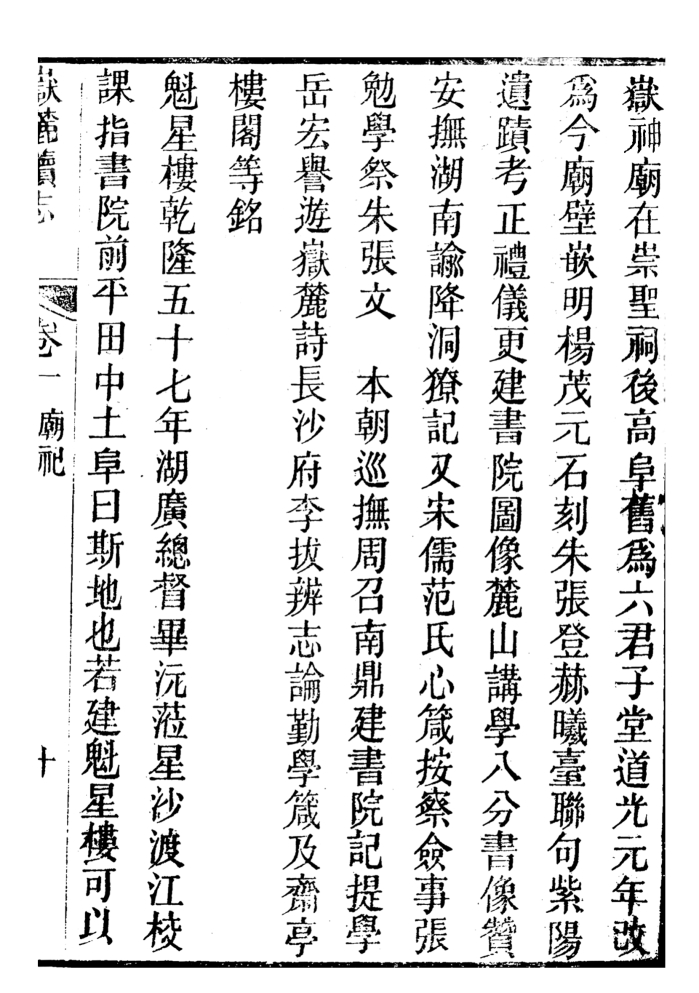 嶽神廟在崇聖祠後高阜舊爲六君子堂道光元年改
爲今廟壁嵌明楊茂元石刻朱張登赫曦臺聯句紫陽
遺蹟考正禮儀更建書院圖像麓山講學八分書像贊
安撫湖南諭降洞獠記又宋儒范氏心箴按察僉事張
勉學祭朱張文　本朝巡撫周召南鼎建書院記提學
岳宏譽遊嶽麓詩長沙府李拔辨志論勤學箴及齋亭
樓閣等銘
魁星樓乾隆五十七年湖廣總督畢沅蒞星沙渡江校
課指書院前平田中土阜曰斯地也若建魁星樓可以
嶽麓續志　卷一　廟祀　十